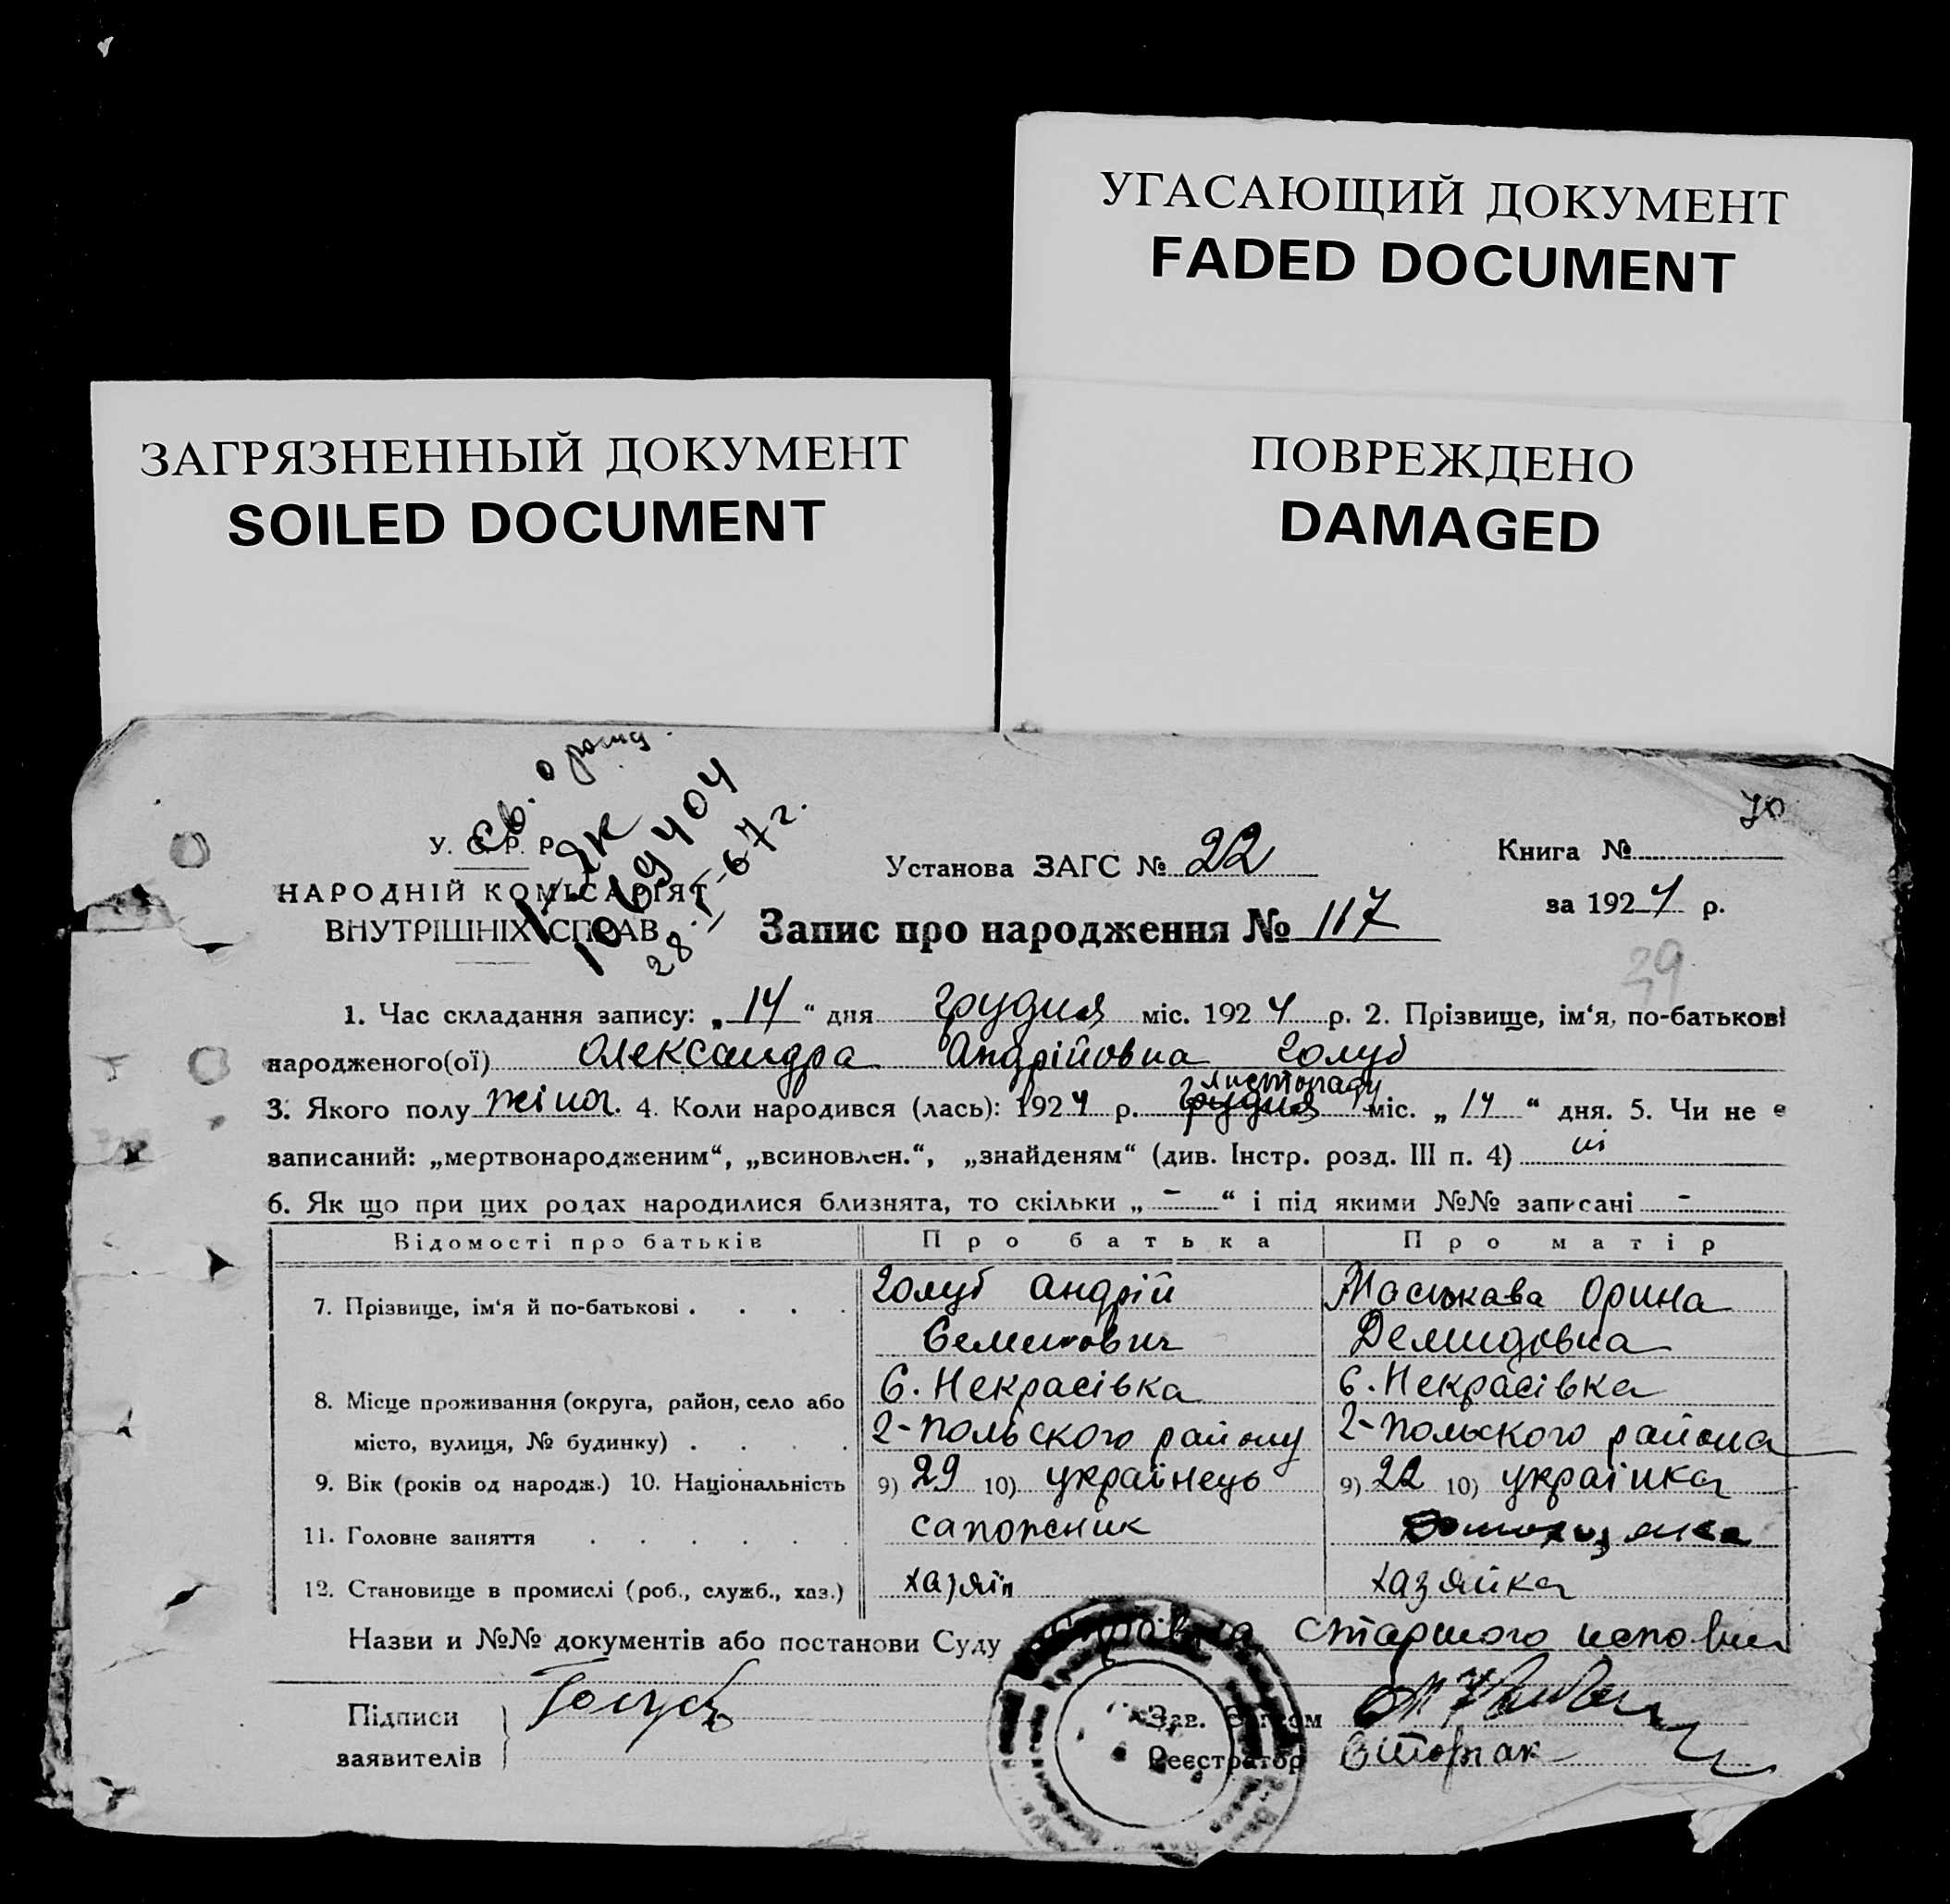 УГАСАЮЩИЙ ДОКУМЕНТ
FADED DOCUMENT
ЗАГРЯЗНЕННЫЙ ДОКУМЕНТ
SOILED DOCUMENT
ПОВРЕЖДЕНО
DAMAGED
Св. о рожд.
169404
28-I-67 г.
70
У. С. Р. Р.
НАРОДНІЙ КОМІСАРІЯТ
ВНУТРІШНІХ СПРАВ
Установа ЗАГС № 22
Книга №
за 1924 р.
Запис про народження № 117
39
1. Час складання запису: „14“ дня грудня міс. 1924 р. 2. Прізвище, ім‘я, по-батькові
народженого(ої) Олександра Андрійовна Голуб
листопаду
3. Якого полу жіноч. 4. Коли народився (лась): 1924 р. грудня міс. „14“ дня. 5. Чи не є
записаний: „мертвонародженим“, „всиновлен.“, „знайденям“ (див. Інстр. розд. III п. 4) ні
6. Як що при цих родах народилися близнята, то скільки „-“ і під якими №№ записані -
Відомості про батьків Про батька Про матір
7. Прізвище, ім‘я й по-батькові . . . . Голуб Андрій Орина
Семенович Демидовна
8. Місце проживання (округа, район, село або С. Некрасівка С. Некрасівка
місто, вулиця, № будинку) . . . . 2-польского району 2-польского района
9. Вік (років од народж.) 10. Національність 9) 29 10) українець 9) 22 10) українка
11. Головне заняття . . . . . . сапожник
12. Становище в промислі (роб., служб., хаз.) хазяїн хазяйка
Назви и №№ документів або постанови Суду старшого
Підписи
заявителів
Голуб
Зав.
Реєстратор